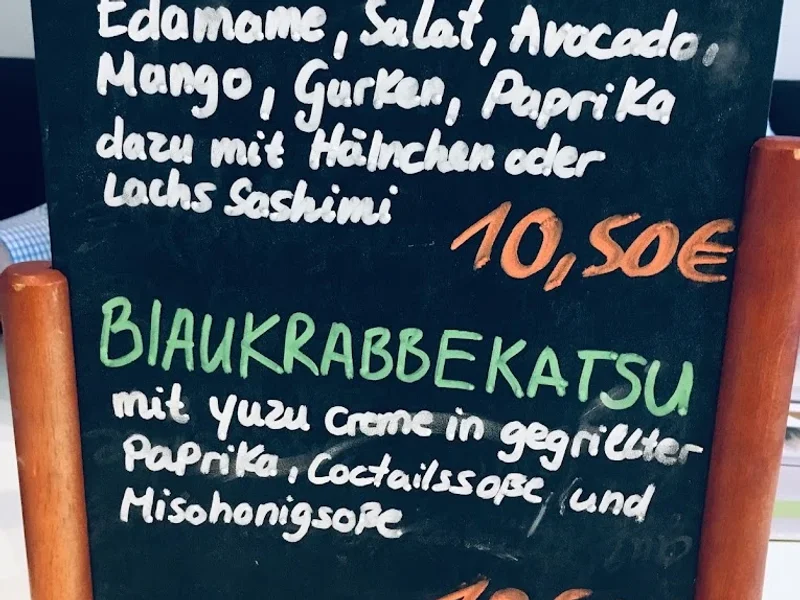 Edamame, Salat, Avocado,
Mango, Gurken, Paprika
dazu mit Hälnchen oder
Lachs Sashimi
10,50€
BlAUKRABBEKATSU
mit yuzu Creme in gegrillter
Paprika, Coctailssoße und
Misohonigsoße